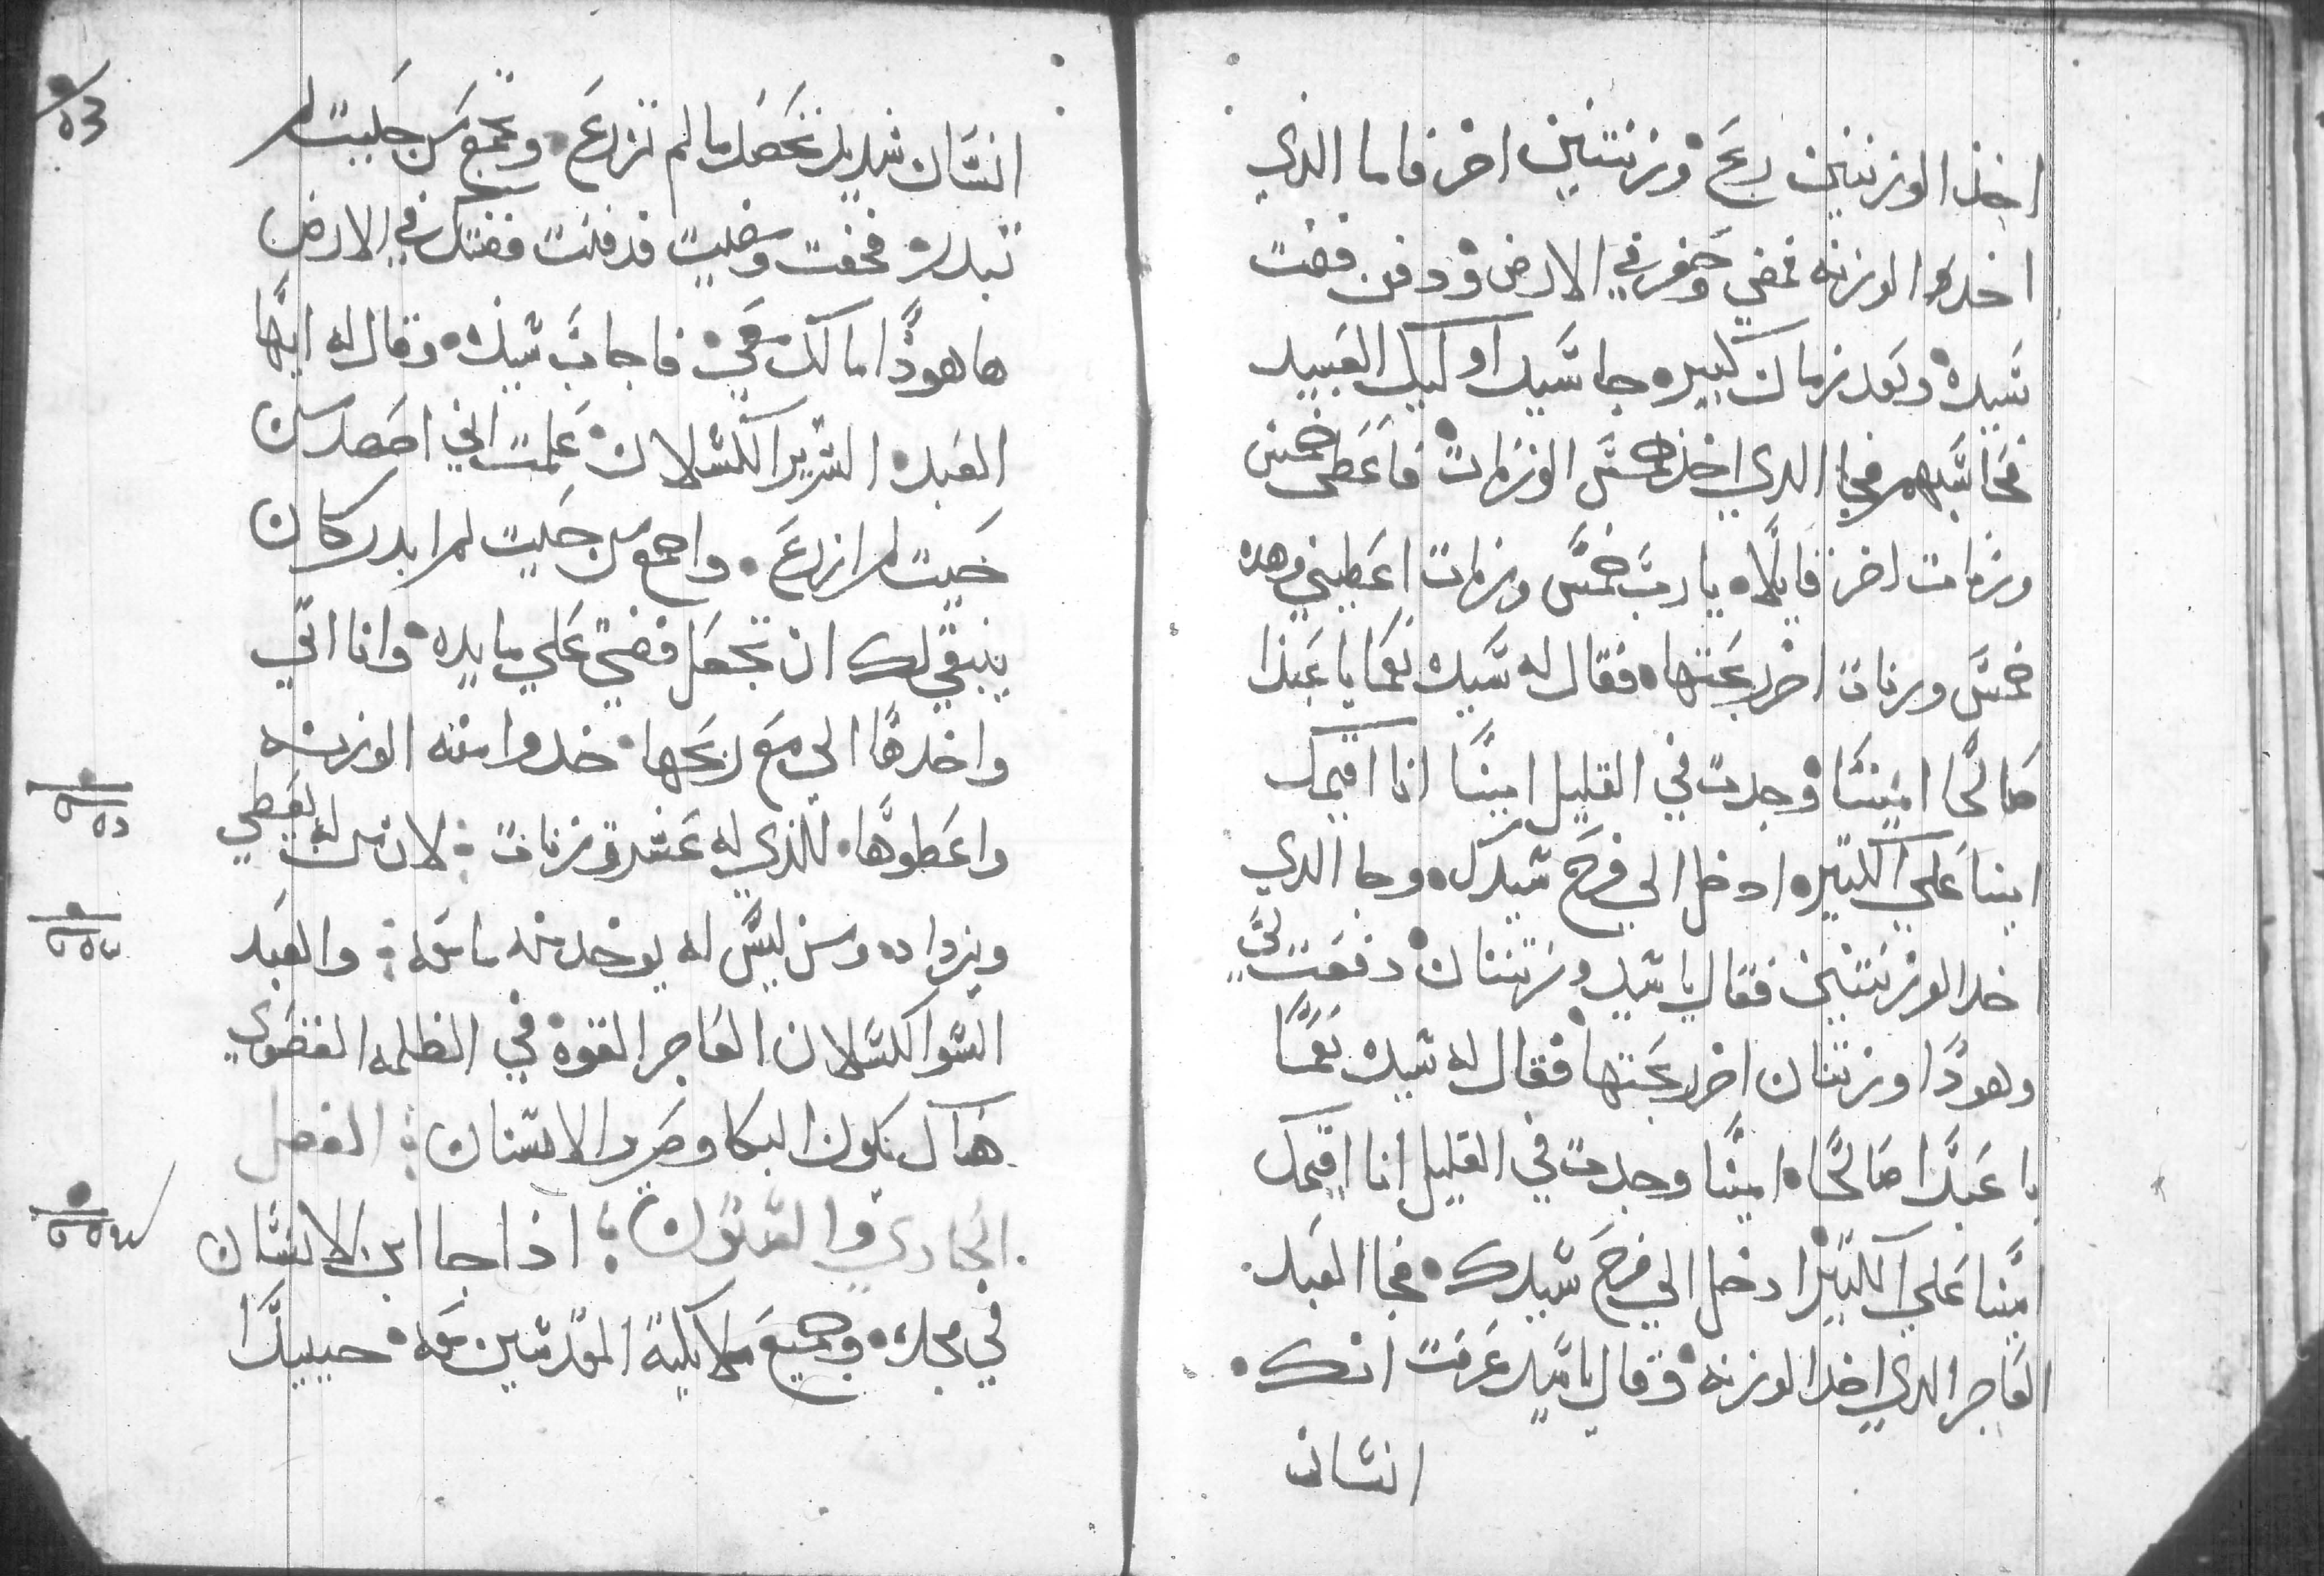 اخذ الوزنتين ربح وزنتين اخر فاما الذي
اخد الوزنه فمضي وحفر في الارض ودفن فضت
سيده وبعد زمان كبير جا سيد اوليك العبيد
فحاسبهم فجا الدي اخذ الخمس الوزنات فاعطى خمس
وزنات اخر قايلا يا رب خمس وزنات اعطيتني وهده
خمس وزنات اخر ربحتها فقال له سيده نعما يا عبدا
صالحا امينا وجدت في القليل امينا انا اقيمك
امينا علي الكتير ادخل الي فرح سيدك وجا الدي
اخد الوزنتين فقال يا سيد وزنتان دفعت لي
وهودا وزنتان اخر ربحتها فقال له سيده نعما
يا عبدا صالحا امينا وجدت في القليل انا اقيمك
امينا علي الكتير ادخل الي فرح سيدك فجا العبد
العاجر الدي اخد الوزنه وقال يا سيد عرفت انك
انسان
انسان شديد تحصد ما لم تزرع وتجمع من حيت لم
تبدر فخفت ومضيت فدفنت فضتك في الارض
ها هودا مالك معي فاجاب سيده وقال له ايها
العبد الشرير الكسلان علمت اني احصد من
حيت لم ازرع واجمع من حيت لم ابدر كان
ينبغي لك ان تجعل فضتي علي مايده وانا اتي
واخدها الي مع ربحها خدوا منه الوزنه
واعطوها للذي له عشرة وزنات لان من له يعطي
ويزداد ومن ليس له يوخد منه ما معه والعبد
السو الكسلان العاجر القوه في الظلمه القصوي
هناك يكون البكا وصرير الاسنان الفصل
الحادي والستون اذا جا ابن الانسان
في مجده وجميع ملايكته المقدسين معه حينيدا